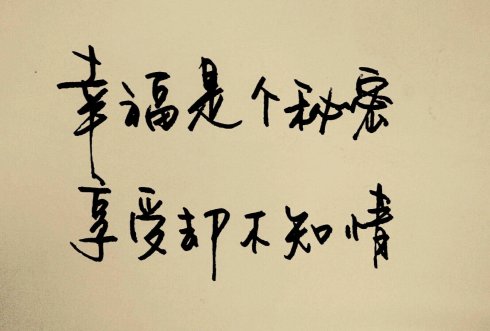 幸福是个秘密
享受却不知情